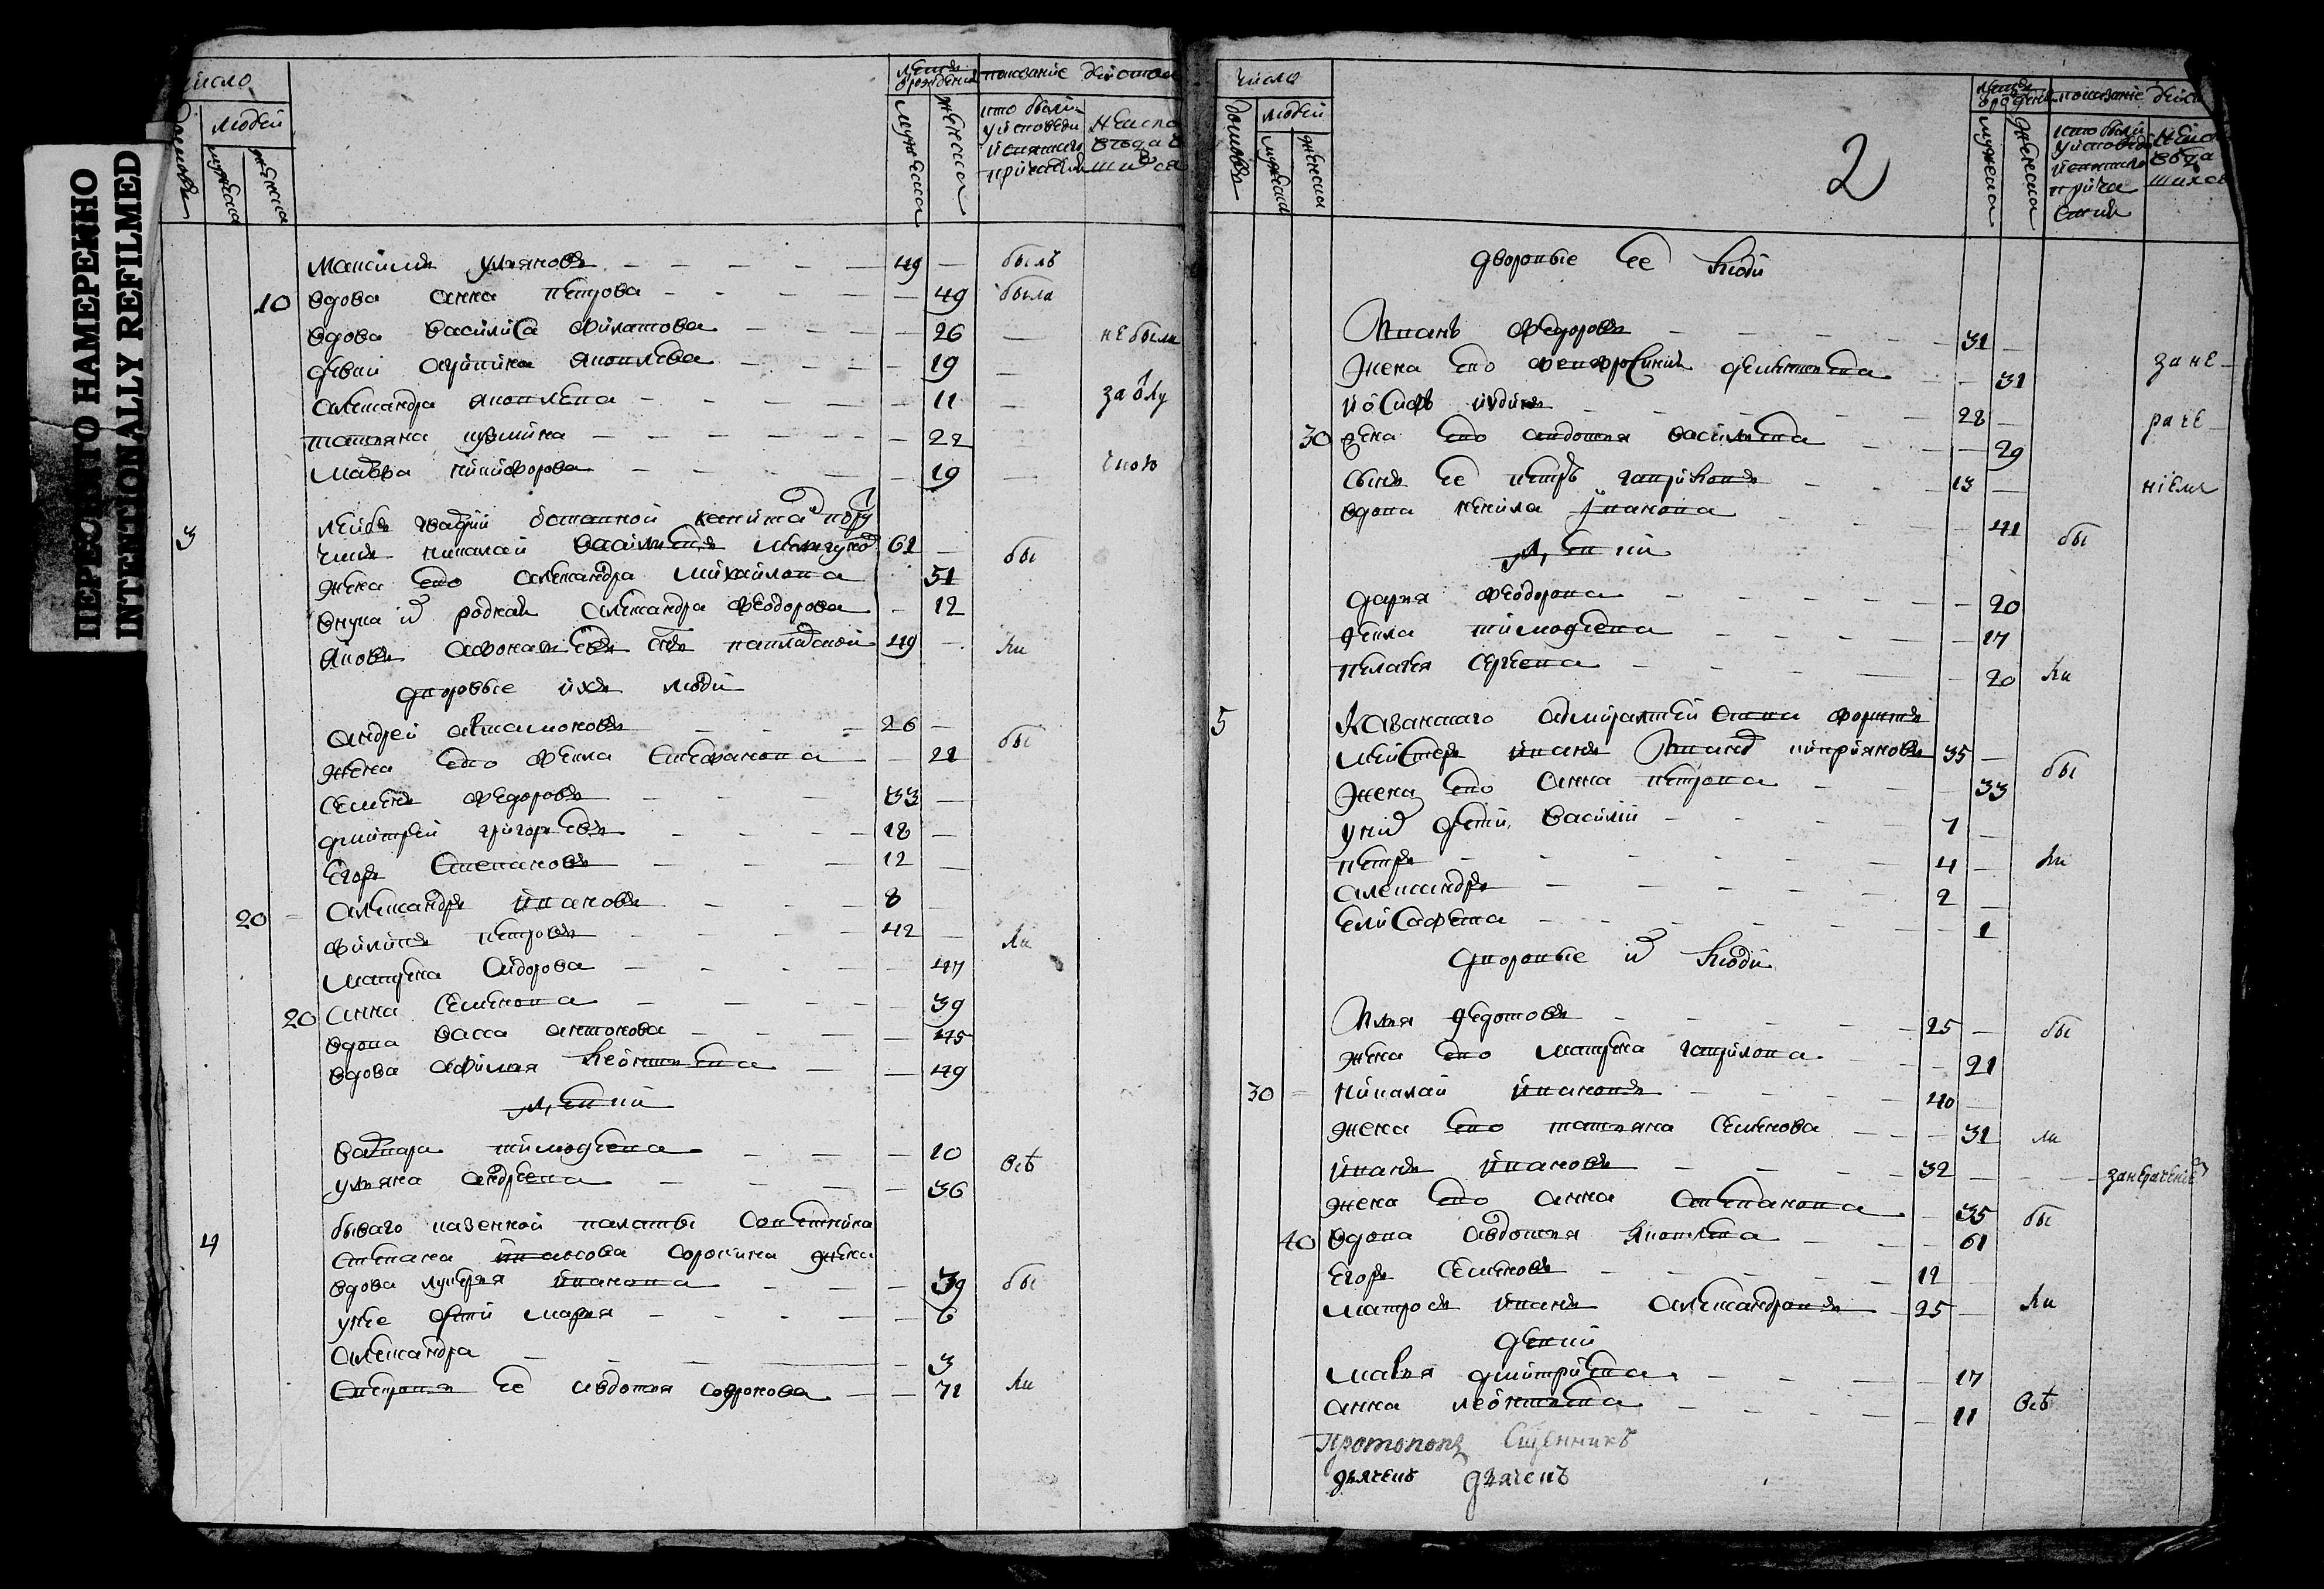 ПЕРЕСНЯТО НАМЕРЕННО
INTENTIONALLY REFILMED
число
домовъ
людей
мужеска
женска
лета от рожденiя
мужеска
женска
показанiе действа
кто были у исповеди и святаго причастiя
Максимъ Ульяновъ 49 — былъ
10 вдова анна петрова — 49 была
вдова василиса филатова — 26 — не были
девки акулина яковлева — 19 —
александра яковлева — 11 — заблу
татьяна кузмина — 22
мавра никифорова — 19 — ждю
3 лейбъ гвардiи отставной
чикъ николай васильевъ 61 — бы
жена ево александра михайлова 51
внука их родная александра феодорова — 12
яковъ афонасьевъ 49 — ли
дворовые ихъ люди
андрей автамоновъ 26 —
жена ево фекла стефанова — 22 бы
семенъ федоровъ 33 —
дмитрей григорьевъ 18 —
егоръ степановъ 12 —
20 александръ ивановъ 8 —
филипъ петровъ 42 — ли
матрена сидорова — 47
20 анна семенова — 39
вдова васса антонова — 45
вдова афимья леонтьева — 49
девки
варвара тимофеева — 20
ульяна андреева — 36 всѣ
4 бываго казенной палаты советника
степана сорокина жена
вдова лукерья иванова — 39 бы
у нее дети марья — 6
александра — 3
ее авдотья — 71 ли
число
домовъ
людей
мужеска
женска
2
лета от рожденiя
мужеска
женска
показанiе
кто были у исповеди и святаго причастiя
дворовые ее люди
Иванъ федоровъ 31 —
жена ево фефросинья дементьева — 31 за не
28 —
30 жена ево авдотья васильева — 29 раче
сынъ ее петръ гавриловъ 13 — нiемъ
вдова ненила иванова — 41 бы
девки
дарья феодорова — 20
фекла тимофеева — 17
пелагея сергеева — 20 ли
5 Казанскаго адмиралтейства форшт
мейстеръ иванъ киприяновъ 35 —
жена ево анна петрова — 33 бы
у них дети василiй 7 —
петръ 4 — ли
александръ 2 —
елисафета — 1
дворовые их люди
Илья федотовъ 25 — бы
жена ево матрена гаврилова — 21
30 николай ивановъ 40 —
жена ево татьяна семенова — 31 ли
иванъ ивановъ 32 — занерачениемъ
жена ево анна степанова — 35 бы
40 вдова авдотья яковлева — 61
егоръ семеновъ 12
матросъ иванъ александровъ 25 — ли
девки
мавра дмитриева — 17
анна леонтьева — 11 всѣ
Протопопъ Сщенникъ
дьяченъ дьяченъ